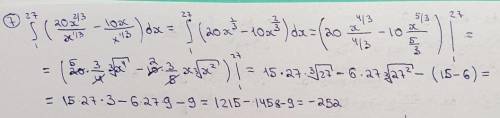 ⑦ ∫₁²⁷ (20x^{2/3}/x^{1/3} − 10x/x^{1/3}) dx = ∫₁²⁷ (20x^{1/3} − 10x^{2/3}) dx = (20 x^{4/3}/4/3 − 10 x^{5/3}/5/3) |₁²⁷ =
= (20·3/4 ∛x⁴ − 10·3/5 x∛x²) |₁²⁷ = 15·27·∛27 − 6·27∛27² − (15−6) =
= 15·27·3 − 6·27·9 − 9 = 1215 − 1458 − 9 = −252